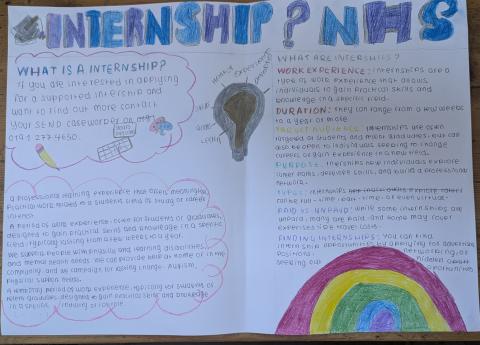 INTERNSHIP? NHS
WHAT IS A INTERNSHIP?
If you are interested in applying
for a supported internship and
want to find out more contact
your SEND caseworker on
0191 277 4650.
work experience
learn
WHAT ARE INTERNSHIPS?
WORK EXPERIENCE: Internships are a
type of work experience that allows
individuals to gain practical skills and
knowledge in a specific field.
DURATION: They can range from a few weeks
to a year or more.
TARGET AUDIENCE: Internships are often
targeted at students and recent graduates, but can
also be open to individuals seeking to change
careers or gain experience in a new field.
PURPOSE: Internships help individuals explore
career paths, develop skills, and build a professional
network.
TYPES: Internships
can be full-time, part-time, or even virtual.
PAID VS UNPAID: While some internships are
unpaid, many are paid and some may cover
expenses like travel costs.
FINDING INTERNSHIPS: You can find
internship opportunities by applying for advertised
positions, networking, or
seeking out hidden
opportunities
A professional learning experience that offers meaningful,
practical work related to a student's field of study or career
interest
A period of work experience, often for students or graduates,
designed to gain practical skills and knowledge in a specific
field, typically lasting from a few weeks to a year.
We support people with physical and learning disabilities,
and mental health needs. We can provide help at home or in the
community, and we campaign for lasting change. Autism,
Physical support needs.
A temporary period of work experience, typically for students or
recent graduates, designed to gain practical skills and knowledge
in a specific industry or role.